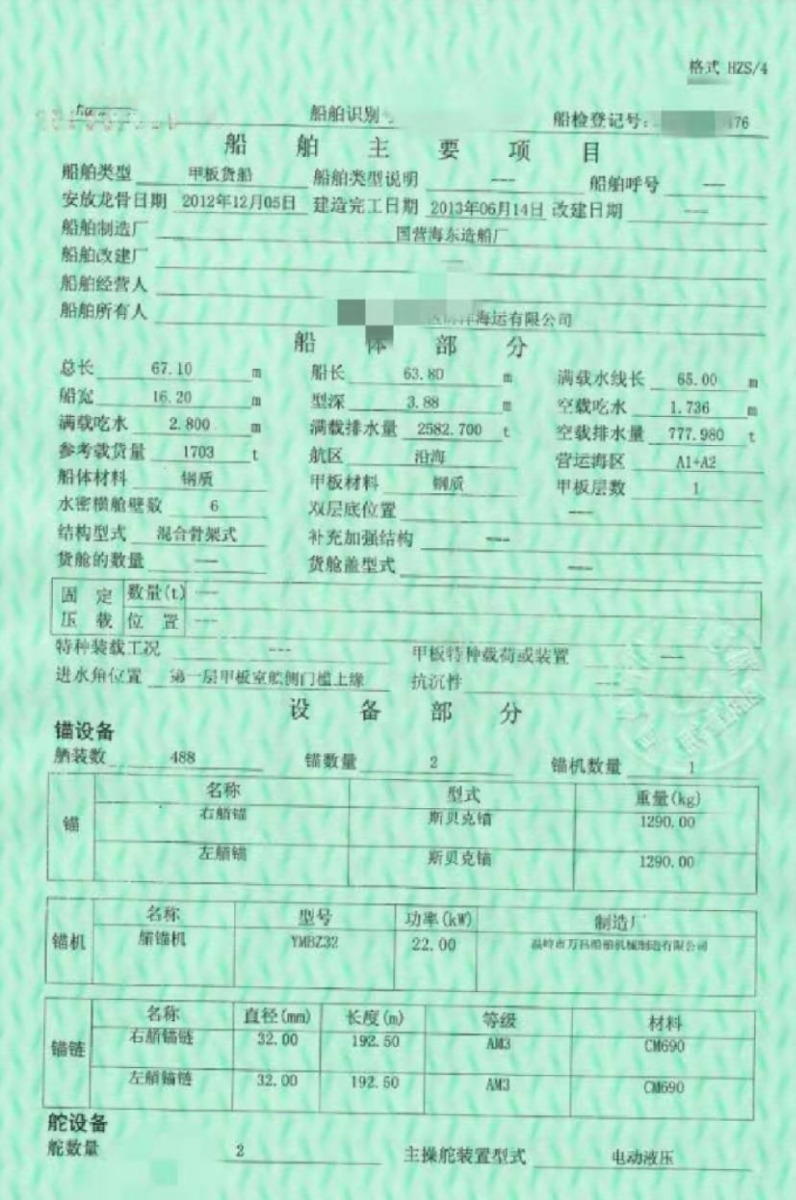 格式 HZS/4
船舶识别 船检登记号: 176
船舶主要项目
船舶类型 甲板货船 船舶类型说明 --- 船舶呼号 ---
安放龙骨日期 2012年12月05日 建造完工日期 2013年06月14日 改建日期 ---
船舶制造厂 国营海东造船厂
船舶改建厂 ---
船舶经营人
船舶所有人 海运有限公司
船体部分
总长 67.10 m 船长 63.80 m 满载水线长 65.00 m
船宽 16.20 m 型深 3.88 m 空载吃水 1.736 m
满载吃水 2.800 m 满载排水量 2582.700 t 空载排水量 777.980 t
参考载货量 1703 t 航区 沿海 营运海区 A1+A2
船体材料 钢质 甲板材料 钢质 甲板层数 1
水密横舱壁数 6 双层底位置 ---
结构型式 混合骨架式 补充加强结构 ---
货舱的数量 --- 货舱盖型式 ---
固定 数量(t) ---
压载 位置 ---
特种装载工况 --- 甲板特种载荷或装置 ---
进水角位置 第一层甲板室舷侧门槛上缘 抗沉性 ---
设备部分
锚设备
舾装数 488 锚数量 2 锚机数量 1
名称 型式 重量(kg)
锚 右艏锚 斯贝克锚 1290.00
左艏锚 斯贝克锚 1290.00
名称 型号 功率(kW) 制造厂
锚机 艏锚机 YMBZ32 22.00 温岭市万昌船舶机械制造有限公司
名称 直径(mm) 长度(m) 等级 材料
锚链 右艏锚链 32.00 192.50 AM3 CM690
左艏锚链 32.00 192.50 AM3 CM690
舵设备
舵数量 2 主操舵装置型式 电动液压